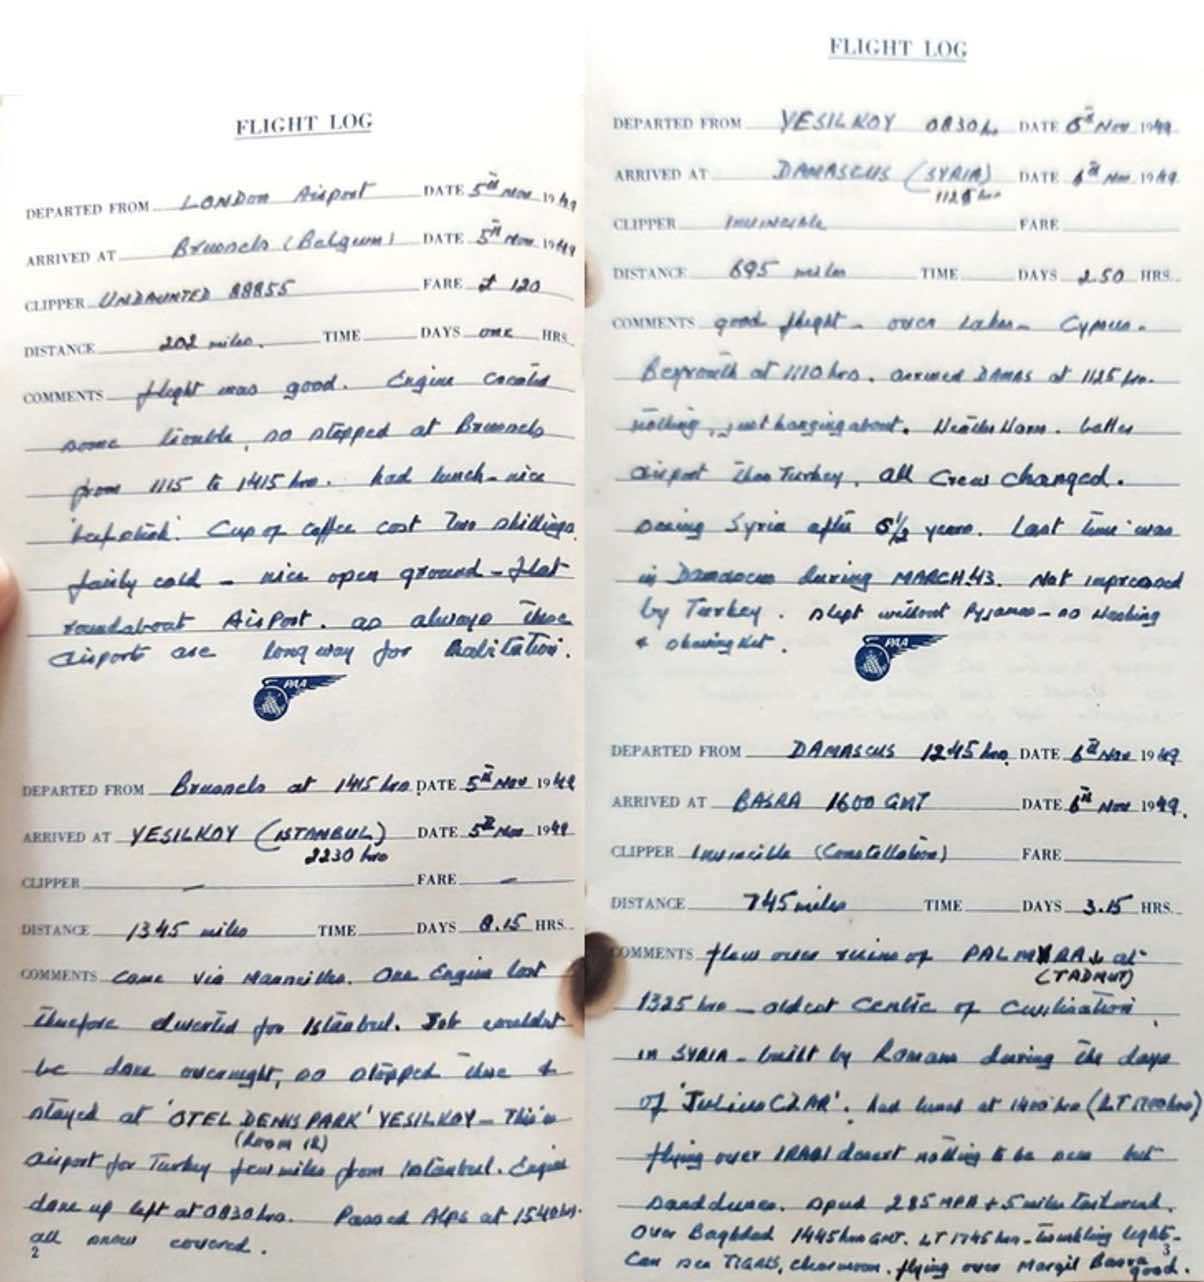 FLIGHT LOG
DEPARTED FROM LONDON Airport DATE 5th Nov 1949
ARRIVED AT Brussels (Belgium) DATE 5th Nov 1949
CLIPPER UNDAUNTED 88855 FARE £ 120
DISTANCE 202 miles. TIME DAYS one HRS.
COMMENTS flight was good. Engine created
some trouble, so stopped at Brussels
from 1115 to 1415 hrs. had lunch - nice
'beefsteak'. Cup of coffee cost Two shillings.
fairly cold - nice open ground - flat
roundabout AirPort. as always these
airports are long way for habitation.
PAA
DEPARTED FROM Brussels at 1415 hrs. DATE 5th Nov 1949
ARRIVED AT YESILKOY (ISTANBUL) DATE 5th Nov 1949
2230 hrs
CLIPPER — FARE —
DISTANCE 1345 miles TIME DAYS 8.15 HRS.
COMMENTS Came via Marseilles. One Engine lost
therefore diverted for Istanbul. Job couldnt
be done overnight, so stopped there &
stayed at 'OTEL DENIS PARK' YESILKOY - This is
(Room 12)
airport for Turkey few miles from Istanbul. Engine
done up left at 0830 hrs. Passed Alps at 1540 hrs.
all snow covered.
2
FLIGHT LOG
DEPARTED FROM YESILKOY 0830 h. DATE 6th Nov 1949
ARRIVED AT DAMASCUS (SYRIA) DATE 6th Nov 1949
1125 hrs
CLIPPER Invincible FARE
DISTANCE 695 miles TIME DAYS 2.50 HRS.
COMMENTS good flight - over Lakes - Cyprus -
Beyrouth at 1110 hrs. arrived DAMAS at 1125 hrs.
nothing, just hanging about. Weather Warm. better
airport than Turkey. all Crew changed.
seeing Syria after 6½ years. Last time was
in Damascus during MARCH.43. Not impressed
by Turkey. slept without Pyjamas - no Washing
& shaving kit.
PAA
DEPARTED FROM DAMASCUS 1245 hrs. DATE 6th Nov 1949
ARRIVED AT BASRA 1600 GMT DATE 6th Nov 1949.
CLIPPER Invincible (Constellation) FARE
DISTANCE 745 miles TIME DAYS 3.15 HRS.
COMMENTS flew over ruins of PALMYRA at
(TADMUT)
1325 hrs - oldest Centre of Civilization
in SYRIA - built by Romans during the days
of 'JULIUS CZAR'. had lunch at 1400 hrs (LT 1700 hrs)
flying over IRAQI desert nothing to be seen but
sanddunes. speed 285 MPH + 5 miles tailwind.
Over Baghdad 1445 hrs GMT. LT 1745 hrs - twinkling light -
Can see TIGRIS, clear moon. flying over Margil Basra good.
3